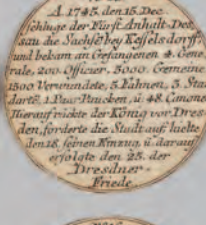 A. 1745. den 15. Dec.
schluge der Fürst Anhalt-Des-
sau die Sachsen bey Kesselsdorff,
und bekam an Gefangenen 4. Gene-
rale, 200. Officier. 3000. Gemeine
1500 Verwundete, 5. Fahnen, 3. Stan-
dartē, 1. Paar Paucken, u. 48. Canonē
Hierauf rückte der König vor Dres-
den, forderte die Stadt auf; hielte
den 18. seinen Einzug, u. darauf
erfolgte den 25. der
Dresdner
Friede.